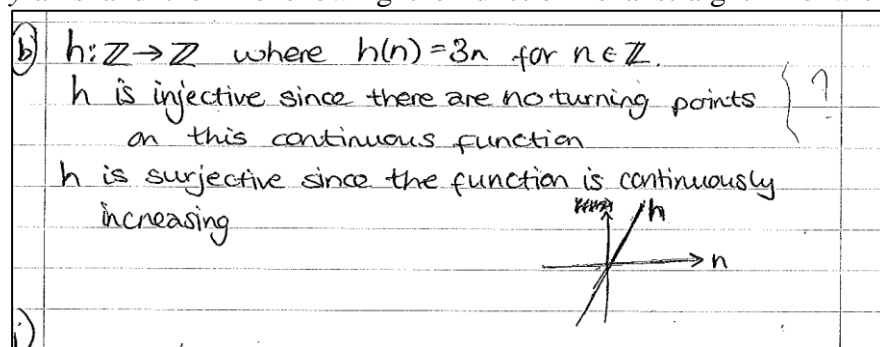 b) h: ℤ→ℤ where h(n) = 3n for n ∈ ℤ.
h is injective since there are no turning points } ?
on this continuous function
h is surjective since the function is continuously
increasing
h
n
i)